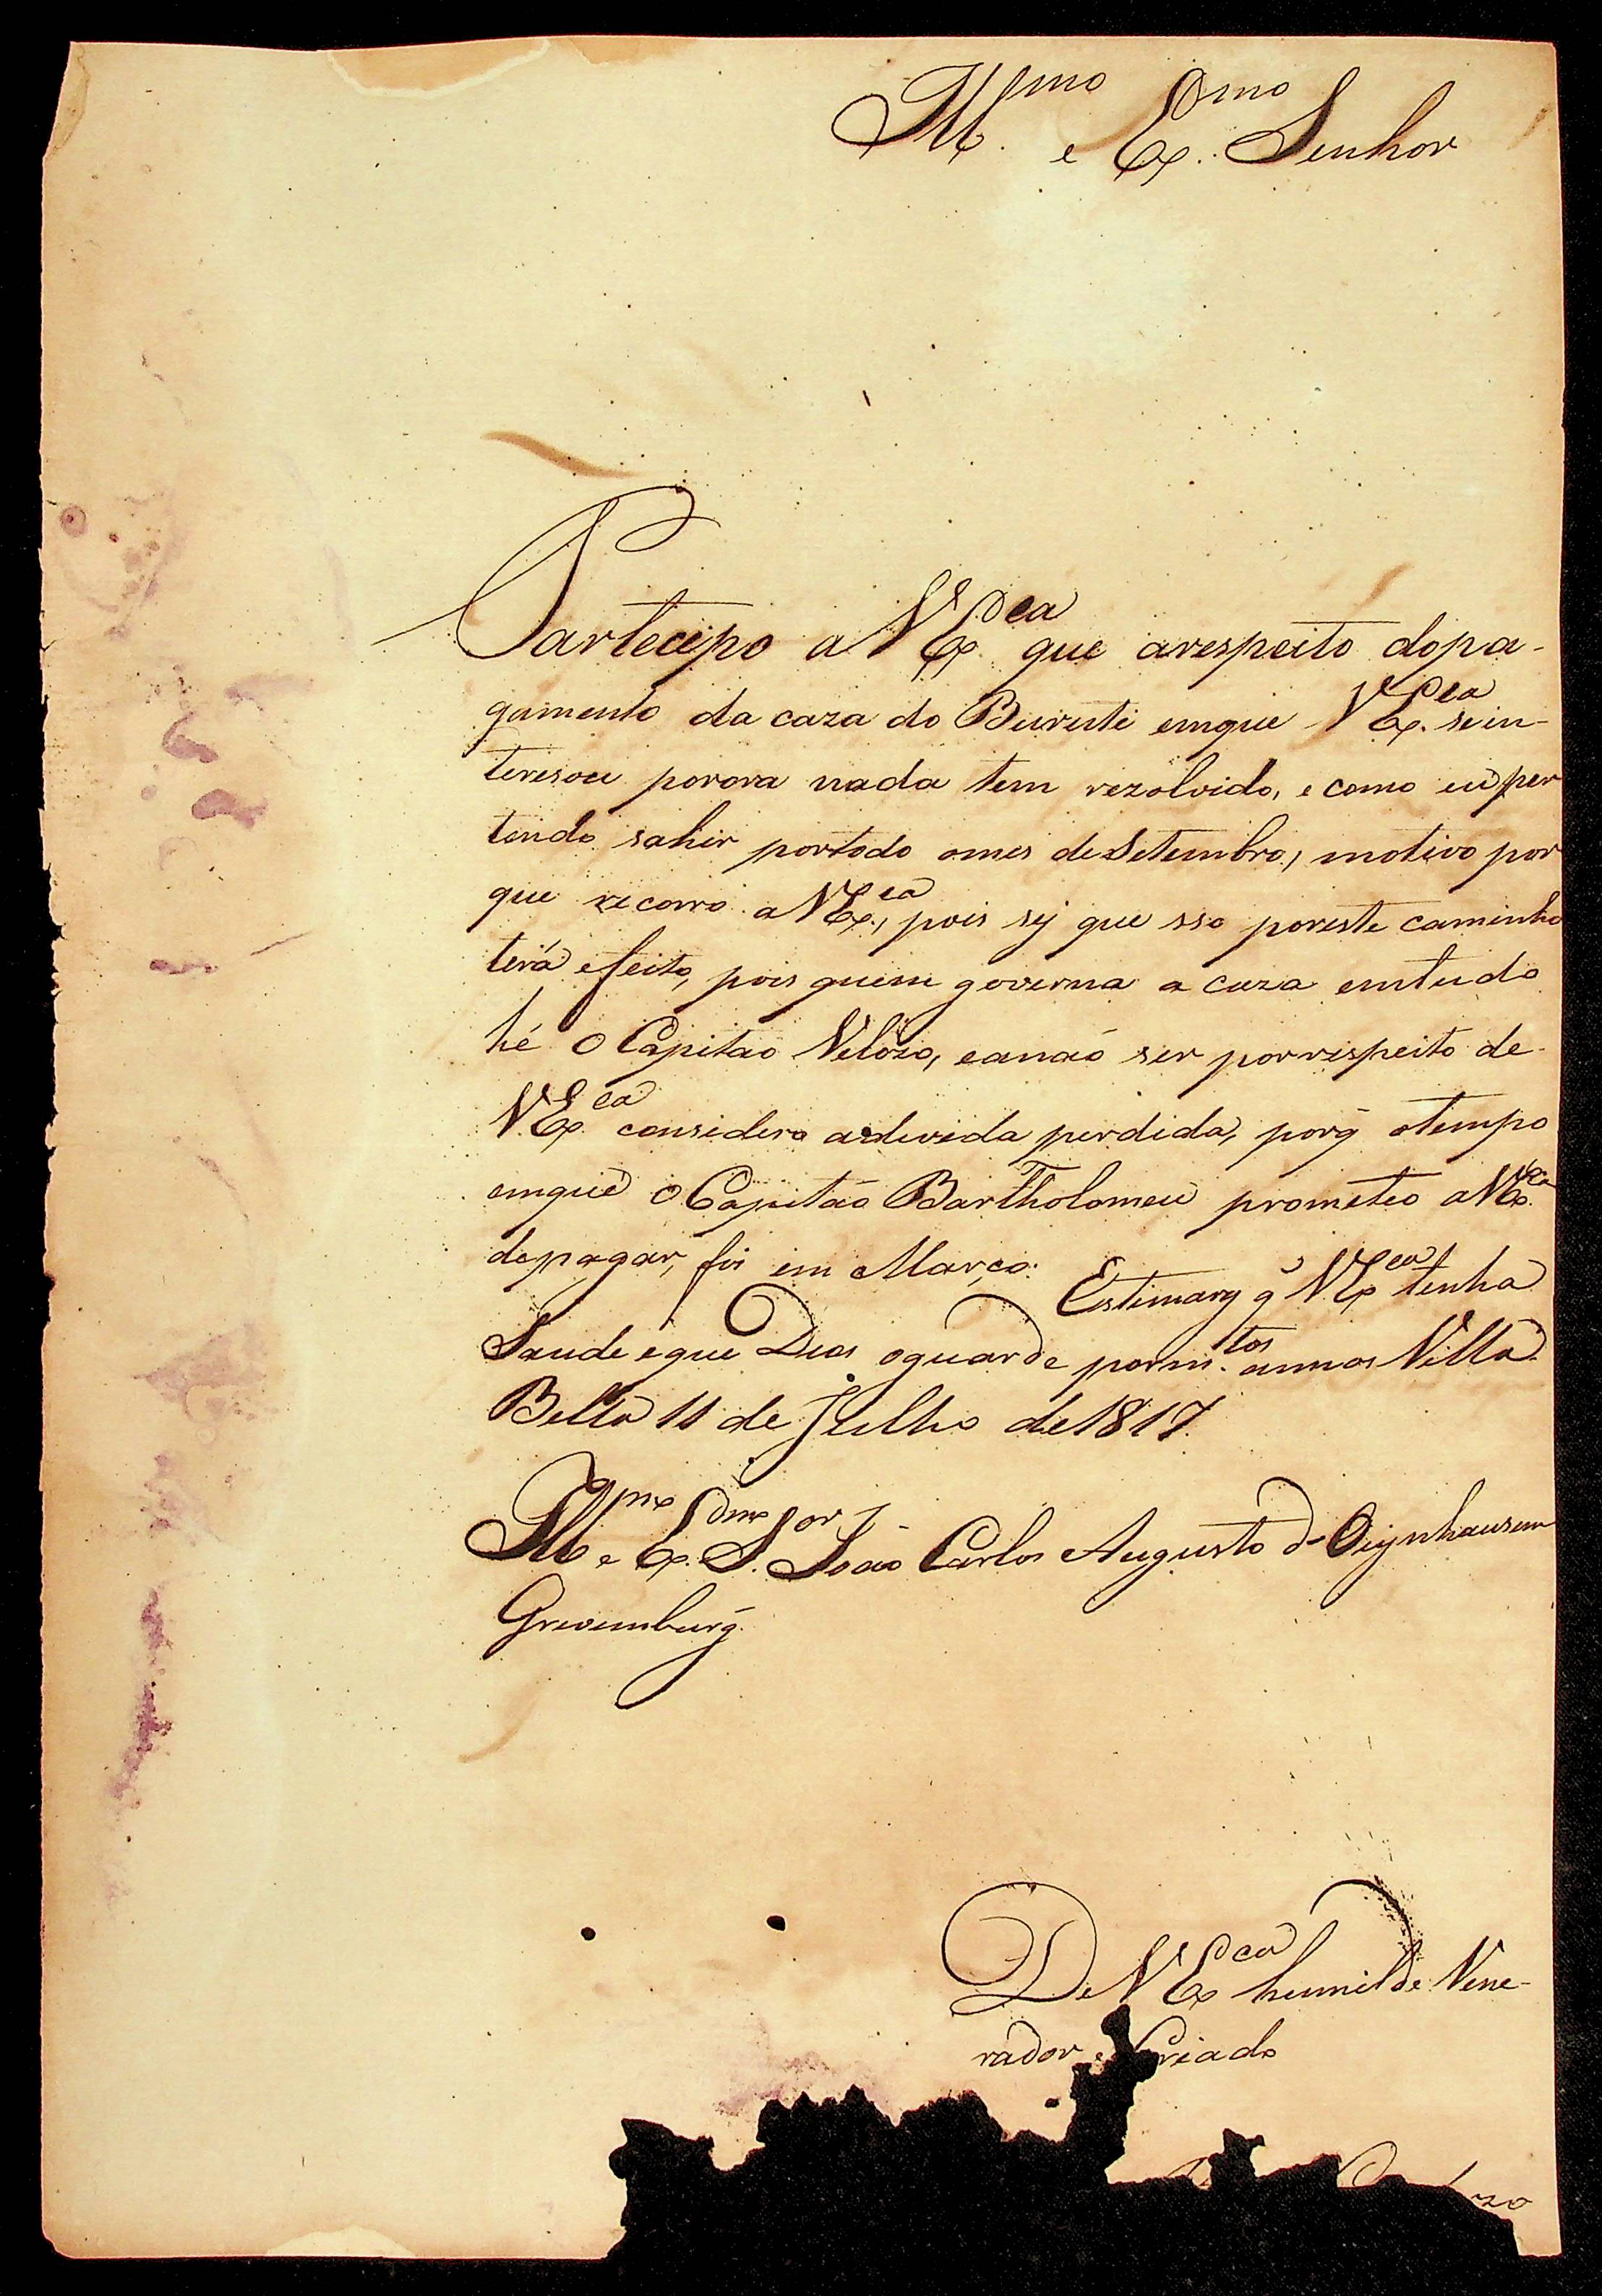 Ill.mo e Ex.mo Senhor
Partecipo a V Ex.cia que arespeito dopa-
gamento da caza do Buriti emque V Ex.cia sein-
teresou porora nada tem rezolvido, e como eu per
tendo sahir portodo omes deSetembro, motivo por
que recorro a V Ex.cia, pois sej que sso poreste caminho
terá efeito, pois quem governa a caza emtudo
hé o Capitaõ Velozo, eanaõ ser porrespeito de
V.Ex.cia considero adevida perdida, porq̃ otempo
emque o Capitaõ Bartholomeu prometeo aV Ex.cia
depagar, foi em Março. Estimarej q̃ V Ex.cia tenha
Saude eque Deos oguarde porm.tos annos Villa
Bella 11 de Julho de 1817.
Ill.mo e Ex.mo S.or Joaõ Carlos Augusto d'Oeynhausen
Gravemburg
De V Ex.cia humilde Vene-
rador e Criado